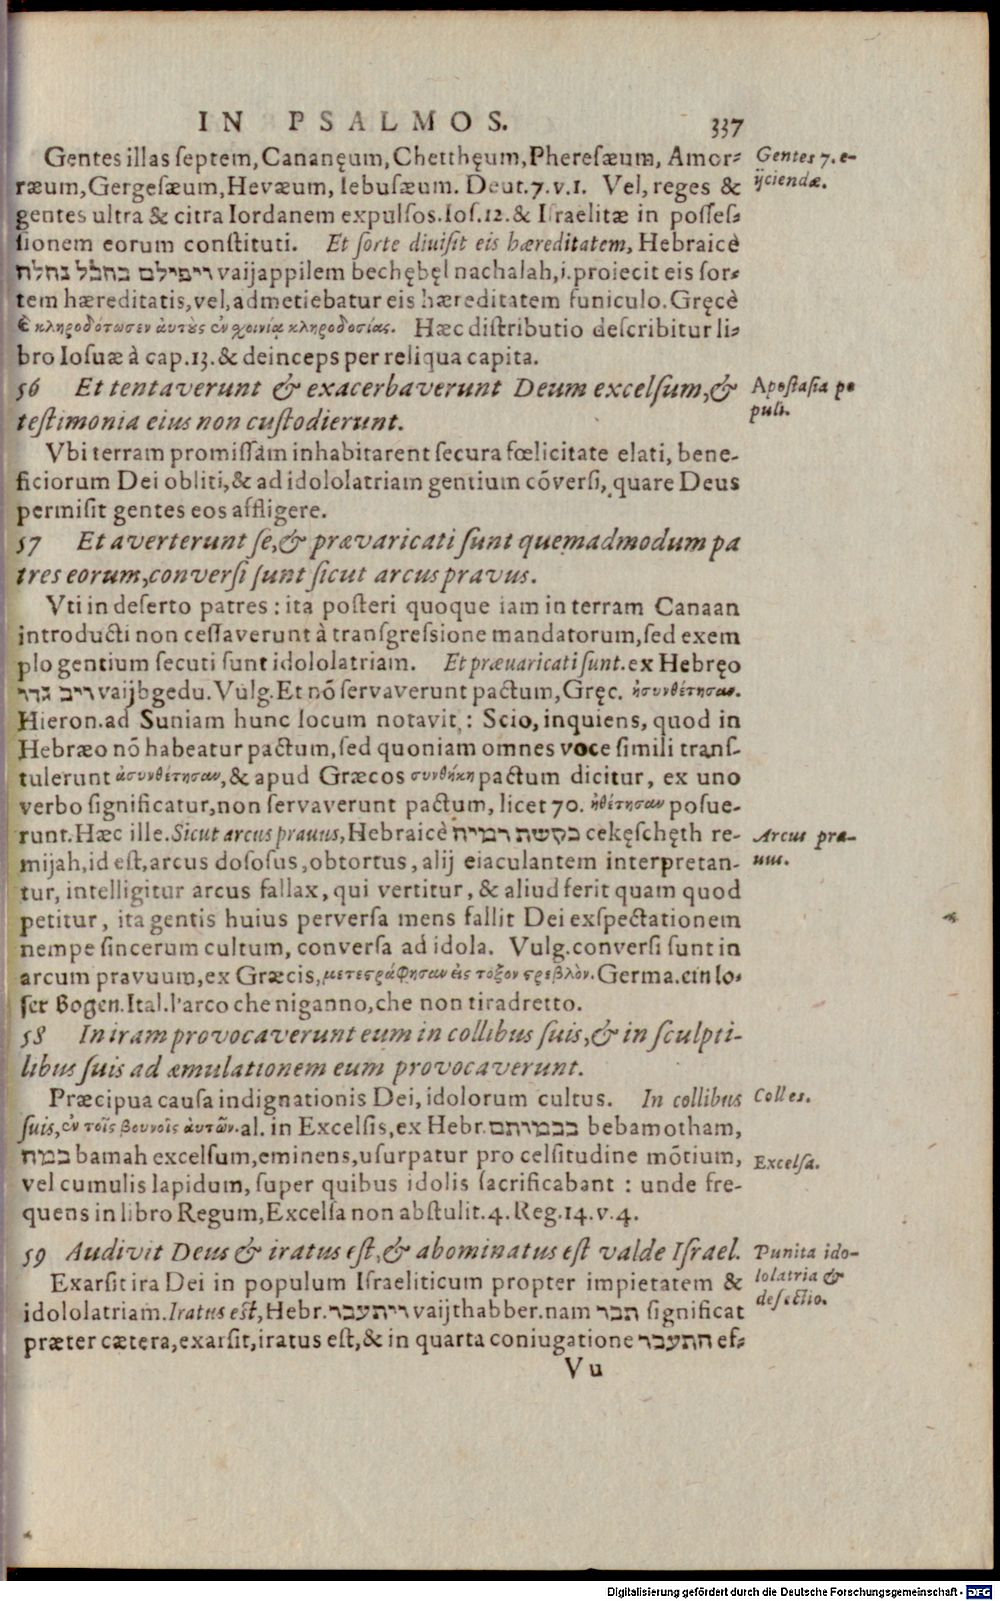 IN PSALMOS. 337
Gentes illas ſeptem, Cananęum, Chetthęum, Pheresæum, Amor-
ræum, Gergeſæum, Hevæum, Iebuſæum. Deut. 7. v. 1. Vel, reges &
gentes ultra & citra Iordanem expulſos. Ioſ. 12. & Iſraelitæ in poſſeſ-
ſionem eorum conſtituti. Et ſorte diuiſit eis hæreditatem, Hebraicè
ויפילם בחבל נחלה vaijappilem bechębęl nachalah, i. proiecit eis ſor-
tem hæreditatis, vel, admetiebatur eis hæreditatem funiculo. Gręcè
ἐκληροδότωσεν ἀυτοὺς ἐν χοινίῳ κληροδοσίας. Hæc diſtributio deſcribitur li-
bro Ioſuæ à cap. 13. & deinceps per reliqua capita.
56 Et tentaverunt & exacerbaverunt Deum excelſum, &
teſtimonia eius non cuſtodierunt.
Vbi terram promiſſam inhabitarent ſecura fœlicitate elati, bene-
ficiorum Dei obliti, & ad idololatriam gentium cõverſi, quare Deus
permiſit gentes eos affligere.
57 Et averterunt ſe, & prævaricati ſunt quemadmodum pa
tres eorum, converſi ſunt ſicut arcus pravus.
Vti in deſerto patres : ita poſteri quoque iam in terram Canaan
introducti non ceſſaverunt à tranſgreſsione mandatorum, ſed exem
plo gentium ſecuti ſunt idololatriam. Et præuaricati ſunt. ex Hebręo
vaijbgedu. Vulg. Et nõ ſervaverunt pactum, Gręc. ἠσυνθέτησαν.
Hieron. ad Suniam hunc locum notavit : Scio, inquiens, quod in
Hebræo nõ habeatur pactum, ſed quoniam omnes voce ſimili tranſ-
tulerunt ἀσυνθέτησαν, & apud Græcos συνθήκη pactum dicitur, ex uno
verbo ſignificatur, non ſervaverunt pactum, licet 70. ἠθέτησαν poſue-
runt. Hæc ille. Sicut arcus prauus, Hebraicè כקשת רמיה cekęſchęth re-
mijah, id eſt, arcus doſoſus, obtortus, alij eiaculantem interpretan-
tur, intelligitur arcus fallax, qui vertitur, & aliud ferit quam quod
petitur, ita gentis huius perverſa mens fallit Dei exſpectationem
nempe ſincerum cultum, converſa ad idola. Vulg. converſi ſunt in
arcum pravuum, ex Græcis, μετεστράφησαν εἰς τόξον στρεβλὸν. Germa. ein lo-
ſer Bogen. Ital. l'arco che niganno, che non tira dretto.
58 In iram provocaverunt eum in collibus ſuis, & in ſculpti-
libus ſuis ad æmulationem eum provocaverunt.
Præcipua cauſa indignationis Dei, idolorum cultus. In collibus
ſuis, ἐν τοῖς βουνοῖς ἀυτῶν. al. in Excelſis, ex Hebr. בבמותם bebamotham,
במה bamah excelſum, eminens, uſurpatur pro celſitudine mõtium,
vel cumulis lapidum, ſuper quibus idolis ſacrificabant : unde fre-
quens in libro Regum, Excelſa non abſtulit. 4. Reg. 14. v. 4.
59 Audivit Deus & iratus eſt, & abominatus eſt valde Iſrael.
Exarſit ira Dei in populum Iſraeliticum propter impietatem &
idololatriam. Iratus est, Hebr. ויתעבר vaijthabber. nam עבר ſignificat
præter cætera, exarſit, iratus eſt, & in quarta coniugatione התעבר ef-
V u
Gentes 7. e-
ijciendæ.
Apoſtaſia po
puli.
Arcus pra-
uus.
Colles.
Excelſa.
Punita ido-
lolatria &
defectio.
Digitalisierung gefördert durch die Deutsche Forschungsgemeinschaft - DFG